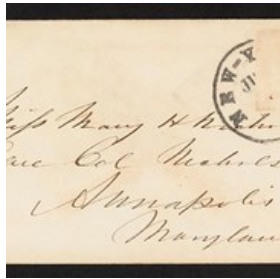 NEW-Y
JU
iss Mary H Nichols
Care Col Nichols
Annapolis
Marylan